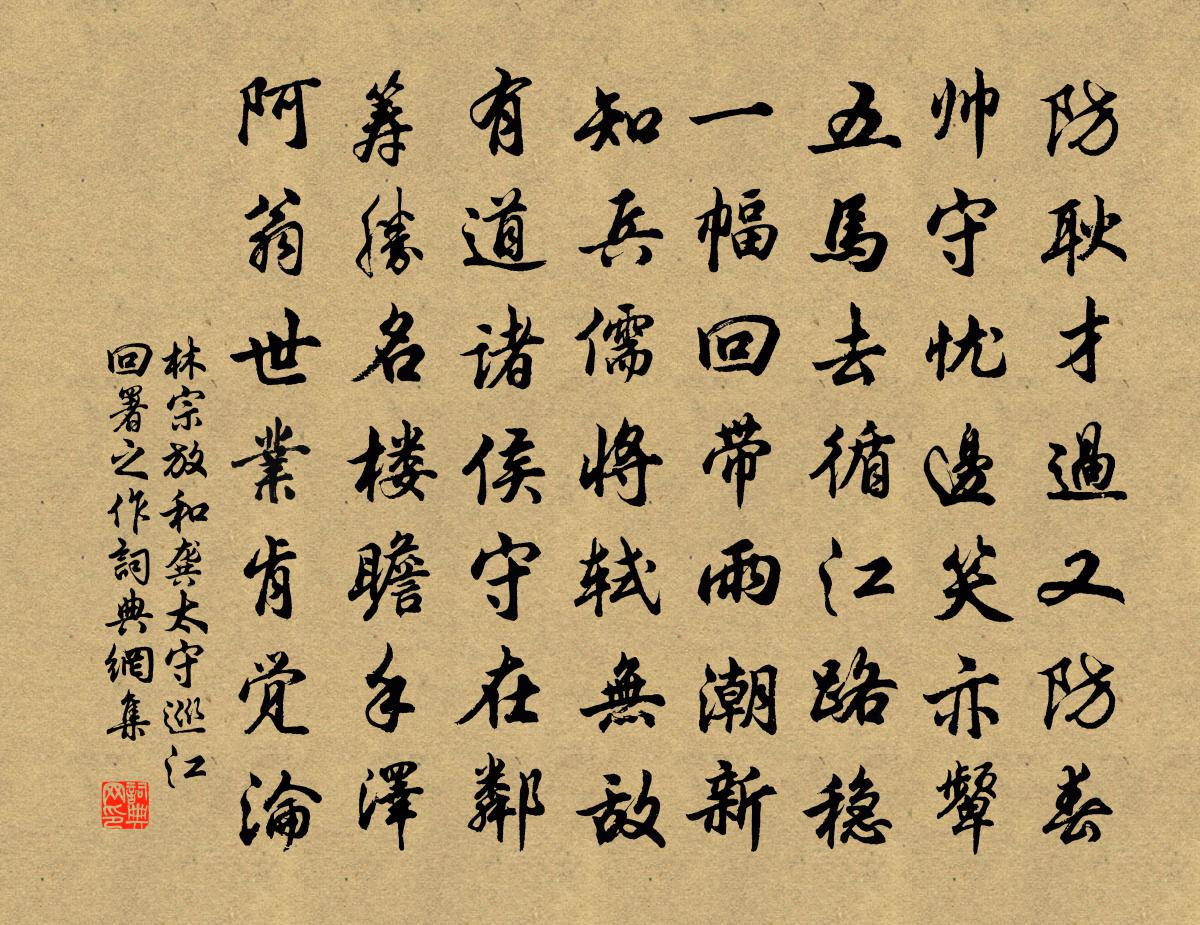 防耿才過又防春
帅守忧邊笑亦颦
五馬去循江路稳
一幅回带雨潮新
知兵儒将轼無敌
有道诸侯守在鄰
筹勝名楼瞻手澤
阿翁世業肯觉淪
林宗放和龚太守巡江
回署之作詞典網集
詞典网印